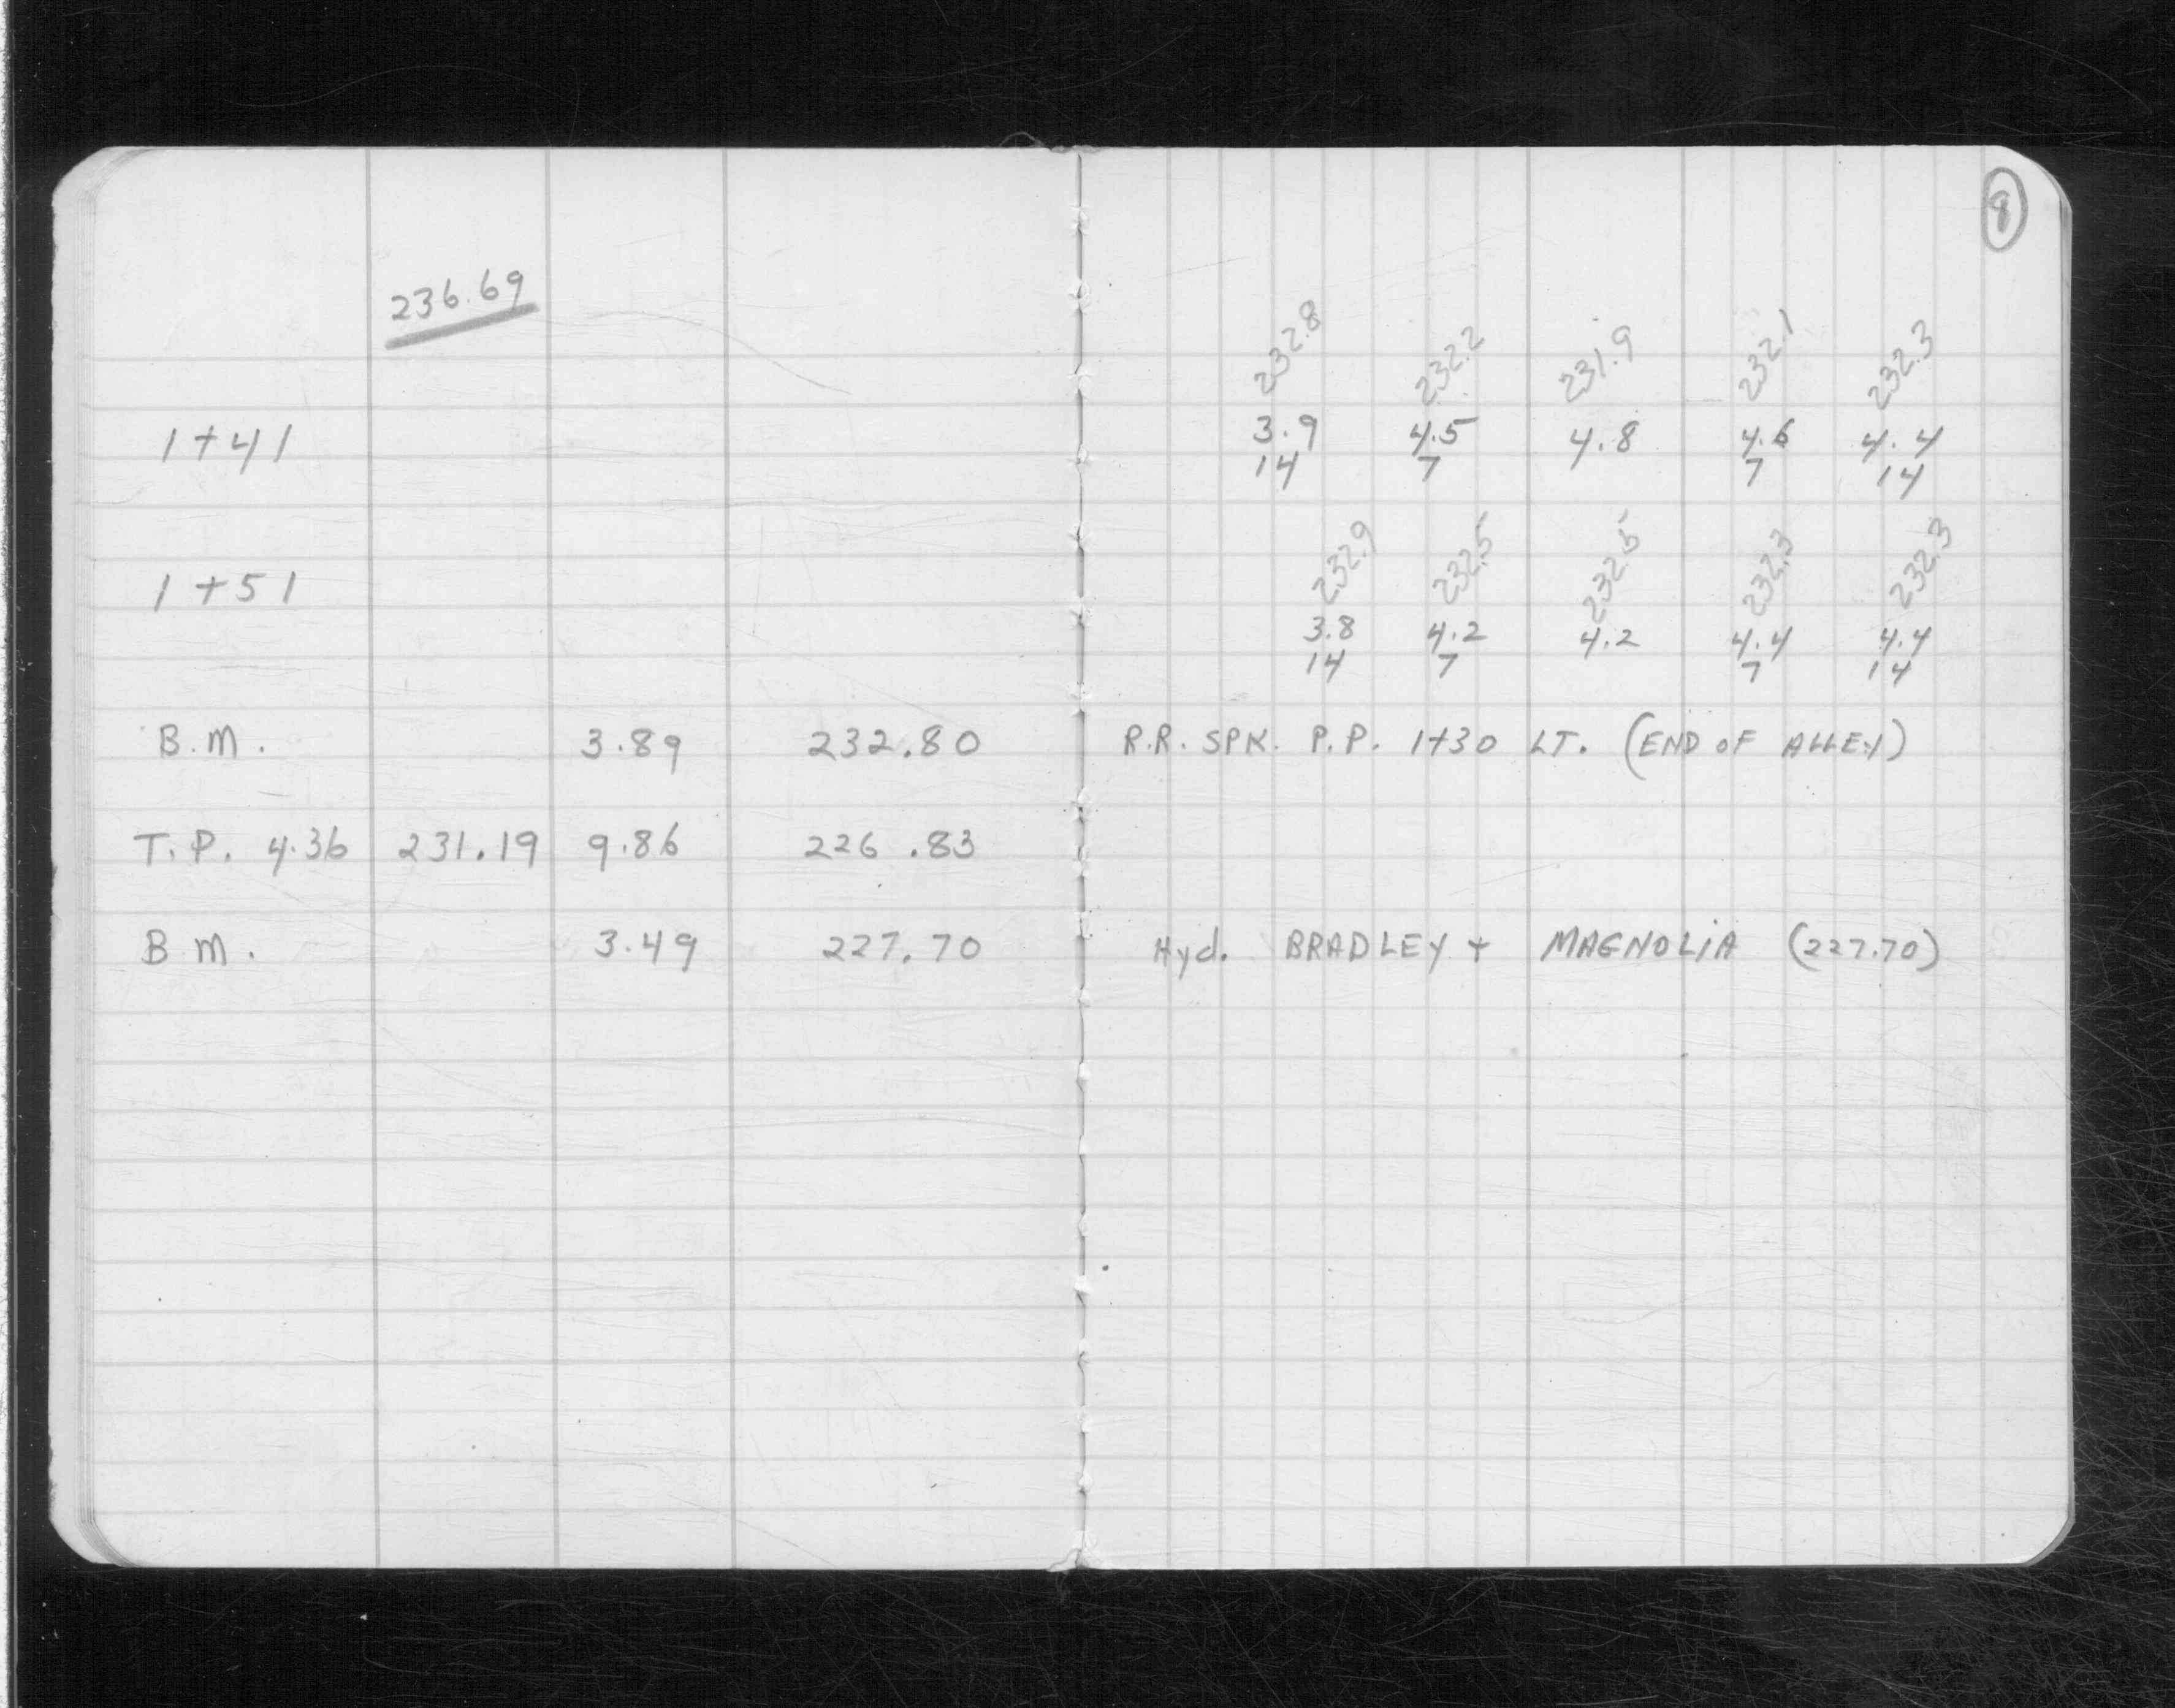 8
236.69
232.8 232.2 231.9 232.1 232.3
1+41 3.9 4.5 4.8 4.6 4.4
14 7 7 14
232.9 232.5 232.5 232.3 232.3
1+51 3.8 4.2 4.2 4.4 4.4
14 7 7 14
B.M. 3.89 232.80 R.R. SPK. P.P. 1+30 LT. (END OF ALLEY)
T.P. 4.36 231.19 9.86 226.83
B M. 3.49 227.70 Hyd. BRADLEY + MAGNOLIA (227.70)